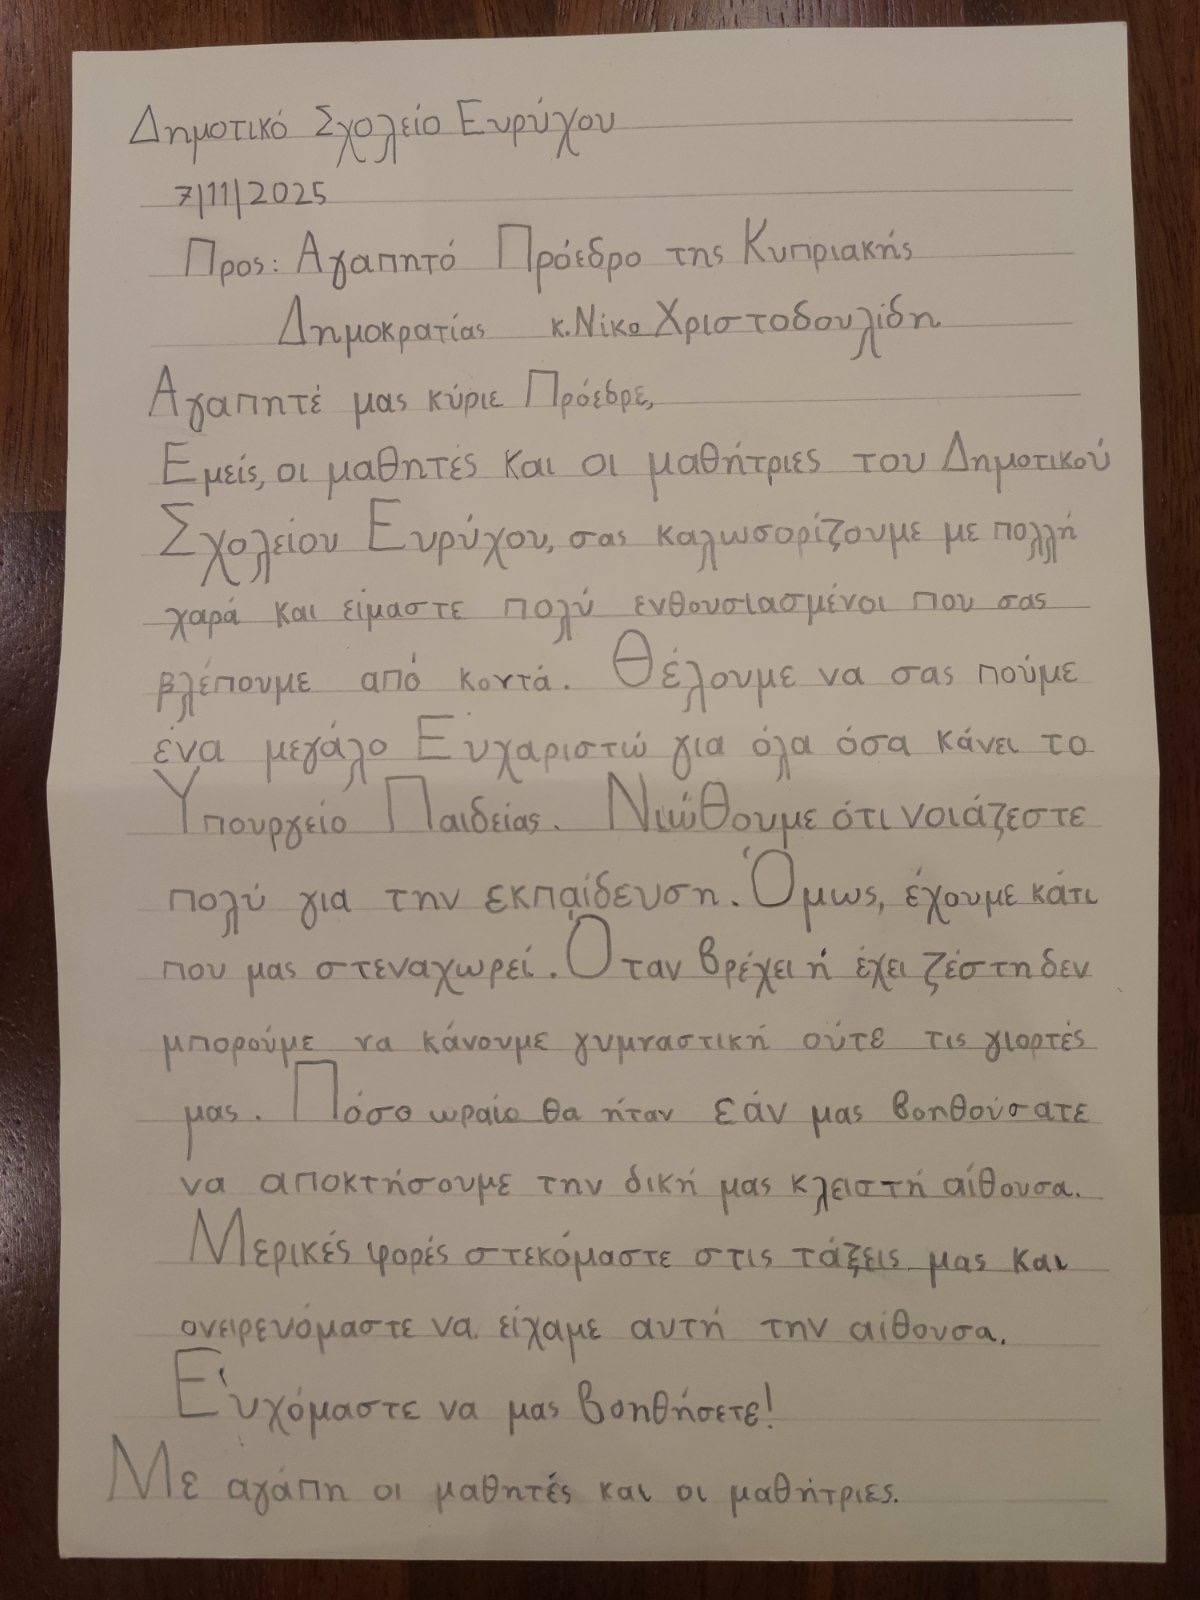 Δημοτικό Σχολείο Ευρύχου
7/11/2025
Προς: Αγαπητό Πρόεδρο της Κυπριακής
Δημοκρατίας κ. Νίκο Χριστοδουλίδη
Αγαπητέ μας κύριε Πρόεδρε,
Εμείς, οι μαθητές και οι μαθήτριες του Δημοτικού
Σχολείου Ευρύχου, σας καλωσορίζουμε με πολλή
χαρά και είμαστε πολύ ενθουσιασμένοι που σας
βλέπουμε από κοντά. Θέλουμε να σας πούμε
ένα μεγάλο Ευχαριστώ για όλα όσα κάνει το
Υπουργείο Παιδείας. Νιώθουμε ότι νοιάζεστε
πολύ για την εκπαίδευση. Όμως, έχουμε κάτι
που μας στεναχωρεί. Όταν βρέχει ή έχει ζέστη δεν
μπορούμε να κάνουμε γυμναστική ούτε τις γιορτές
μας. Πόσο ωραίο θα ήταν εάν μας βοηθούσατε
να αποκτήσουμε την δική μας κλειστή αίθουσα.
Μερικές φορές στεκόμαστε στις τάξεις μας και
ονειρευόμαστε να είχαμε αυτή την αίθουσα.
Ευχόμαστε να μας βοηθήσετε!
Με αγάπη οι μαθητές και οι μαθήτριες.